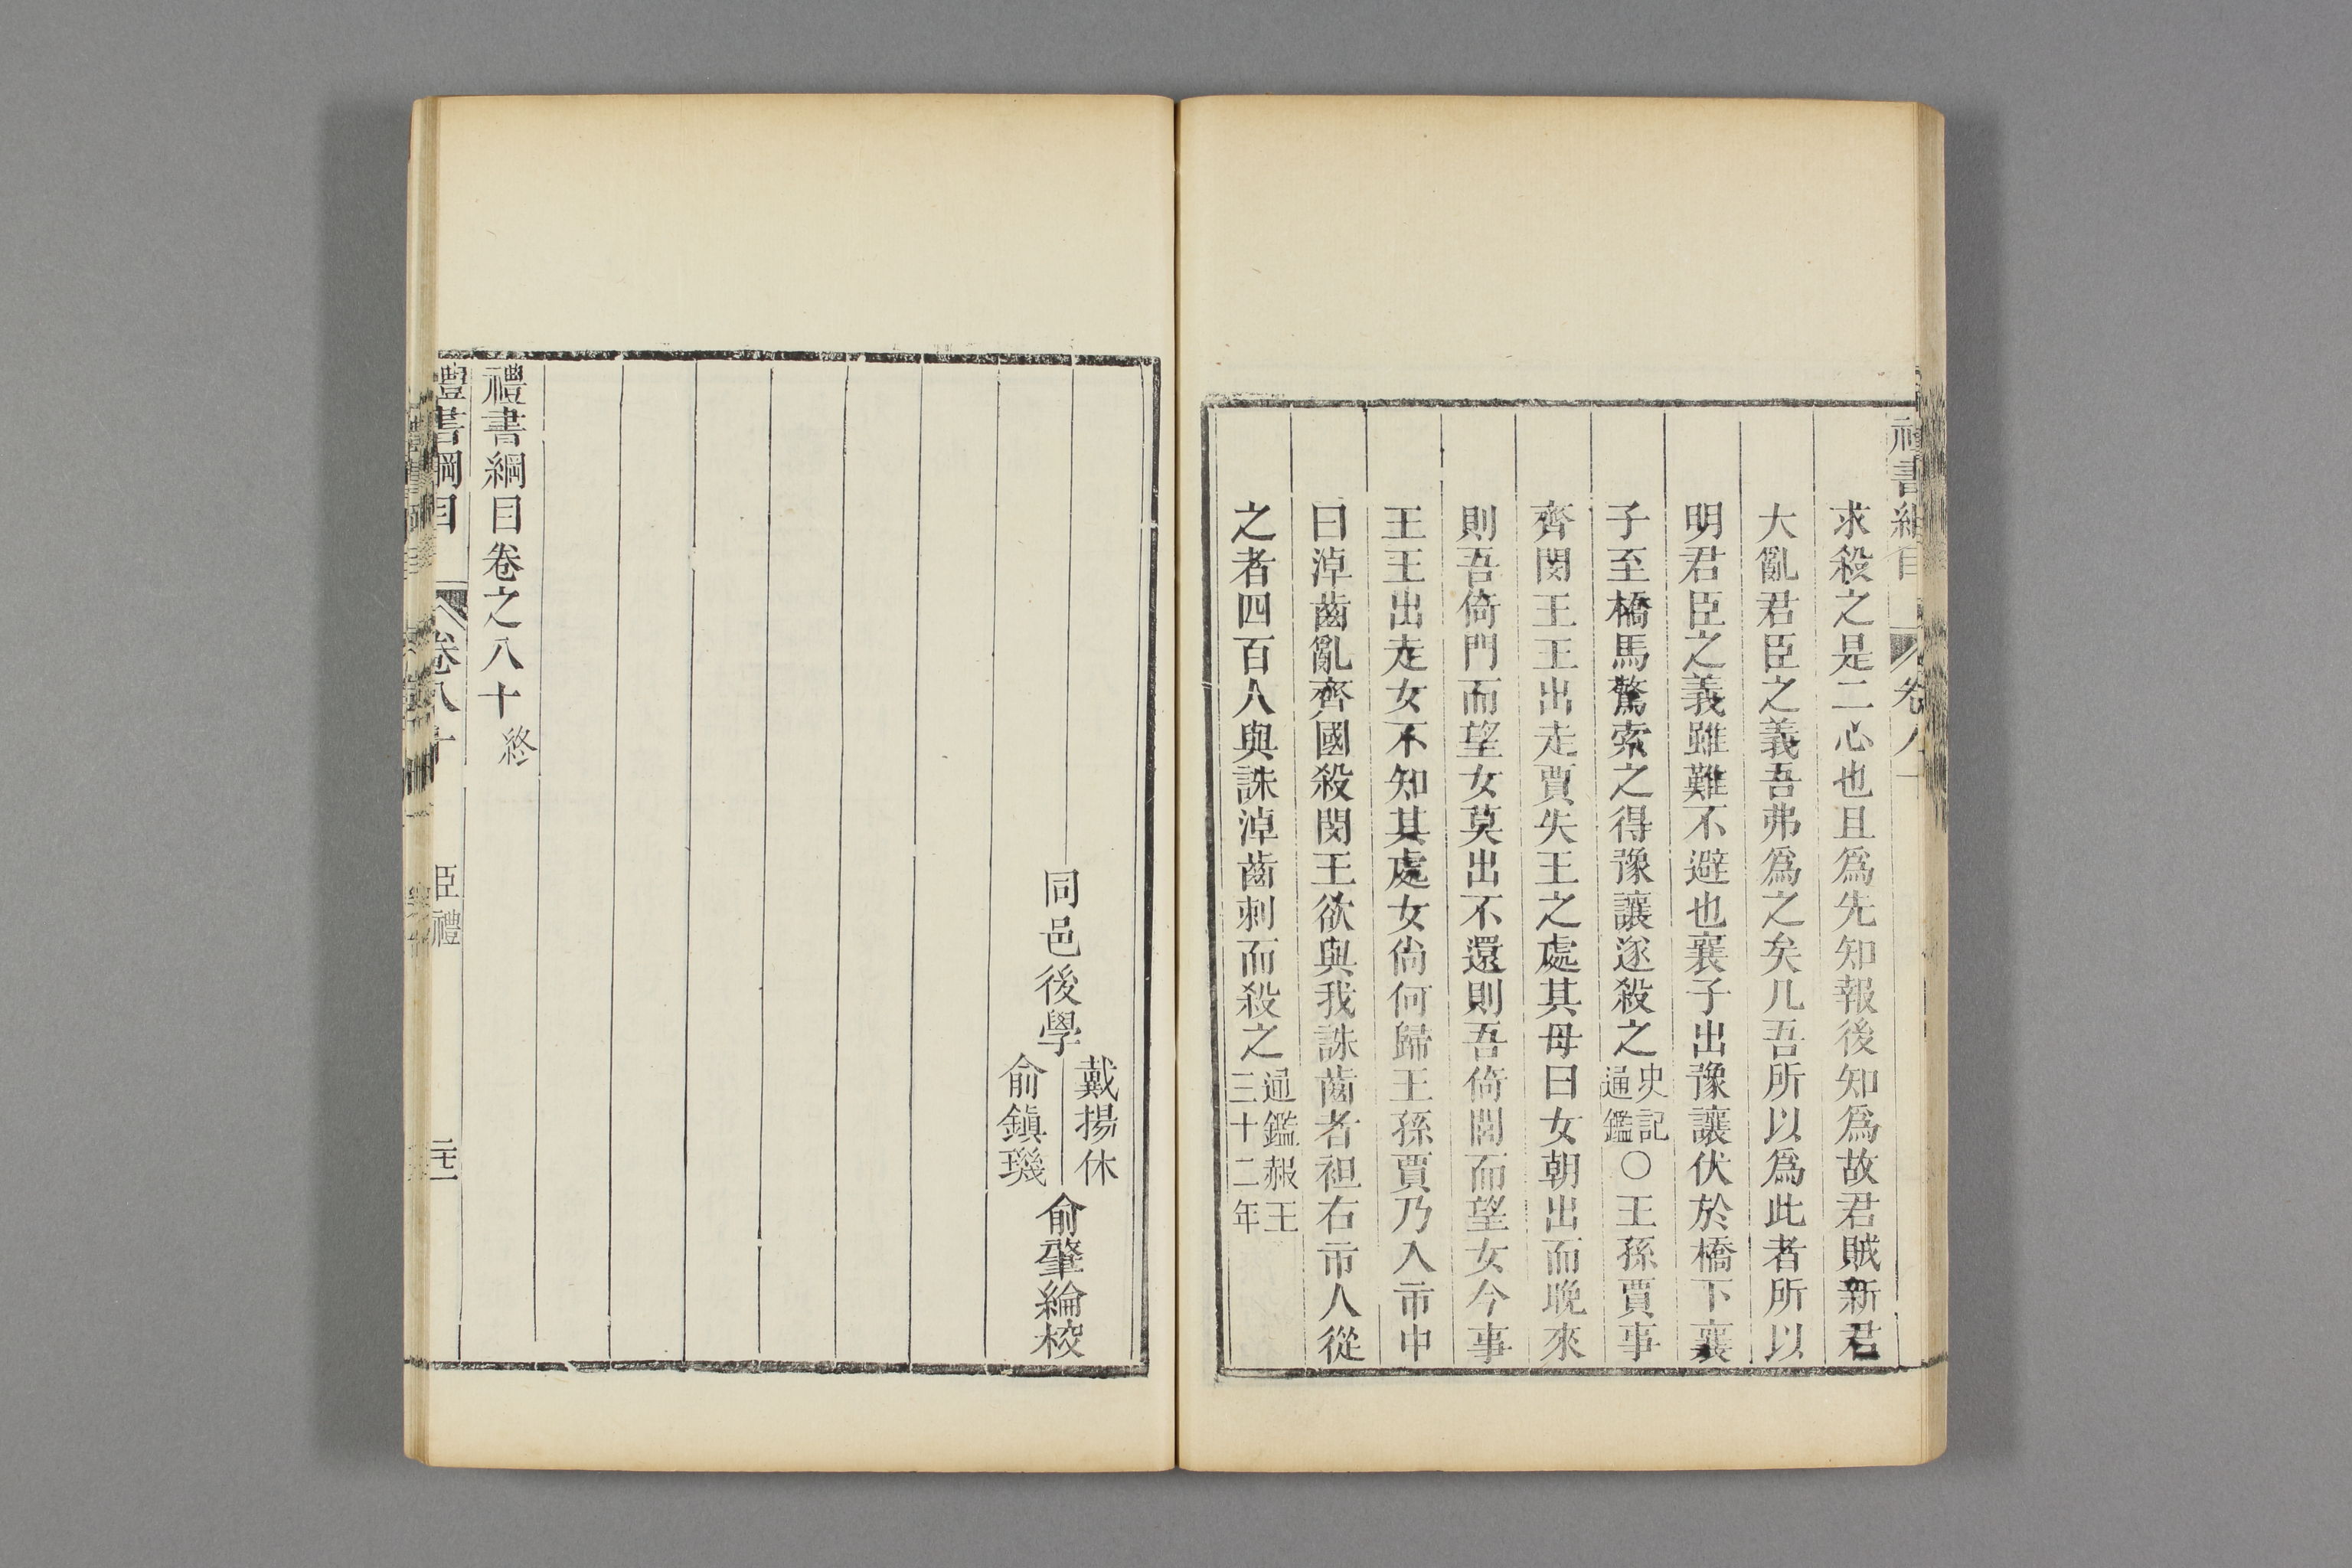 求殺之是二心也且爲先知報後知爲故君賊新君
大亂君臣之義吾弗爲之矣凡吾所以爲此者所以
明君臣之義雖難不避也襄子出豫讓伏於橋下襄
子至橋馬驚索之得豫讓遂殺之史記通鑑○王孫賈事
齊閔王王出走賈失王之處其母曰女朝出而晚來
則吾倚門而望女莫出不還則吾倚閭而望女今事
王王出走女不知其處女尙何歸王孫賈乃入市中
曰淖齒亂齊國殺閔王欲與我誅齒者袒右市人從
之者四百人與誅淖齒刺而殺之通鑑赧王三十二年
同邑後學
戴揚休
俞鎭璣
俞肇綸校
禮書綱目卷之八十終
禮書綱目 卷八十 臣禮